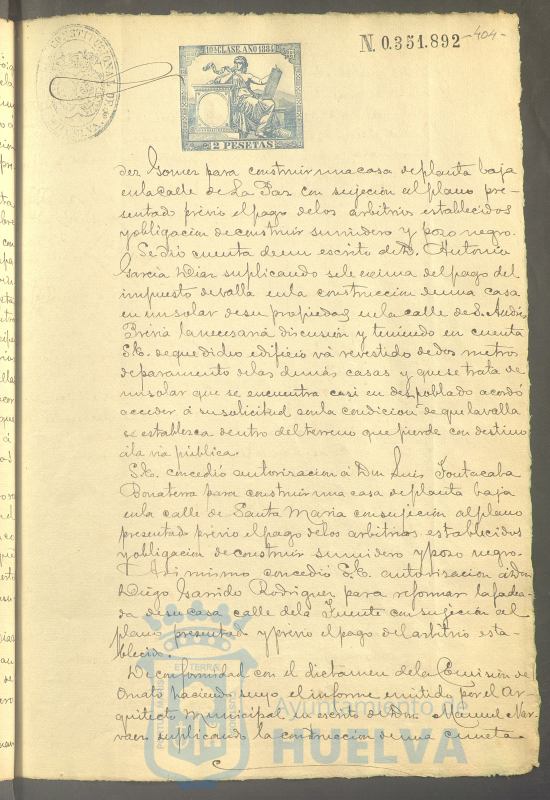 N. 0.351.892 -404-
10ª CLASE. AÑO 1884
2 PESETAS
dez Gomez para construir una casa de planta baja
en la calle de La Paz con sujeción al plano pre-
sentado previo el pago de los arbitrios establecidos
y obligacion de construir sumidero y pozo negro.
Se dió cuenta de un escrito de D. Antonio
García Diaz suplicando se le exima del pago del
impuesto de valla en la construccion de una casa
en un solar de su propiedad en la calle de S. Andrés
Previa la necesaria discusión y teniendo en cuenta
S.E. de que dicho edificio vá revestido de dos metros
de paramento de las demás casas y que se trata de
un solar que se encuentra casi en despoblado acordó
acceder á su solicitud con la condicion de que la valla
se establezca dentro del terreno que pierde con destino
á la via pública.
S.E. concedió autorizacion á Don Luis
para construir una casa de planta baja
en la calle de Santa Maria con sujeción al plano
presentado previo el pago de los arbitrios establecidos
y obligacion de construir sumidero y pozo negro.
Asimismo concedió S.E. autorizacion á Don
Diego Garrido Rodriguez para reformar la facha-
da de su casa calle de la Fuente con sujeción al
plano presentado y previo el pago del arbitrio esta-
blecido.
De conformidad con el dictamen de la Comisión de
Ornato haciendo suyo el informe emitido por el Ar-
quitecto Municipal en escrito de Don Manuel Nar-
vaez suplicando la construccion de una cuneta
Ayuntamiento de
HUELVA